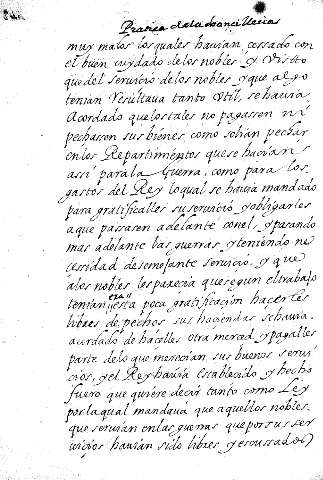 Pratica de las chancillerias
muy malos los quales hauian cessado con
el buen cuydado de los nobles y visto
que del seruicio de los nobles y que algo
tenian Resultaua tanto vtil, se hauia
Acordado que los tales no pagassen ni
pechassen sus bienes como solian pechar
en los Repartimientos que se hazian
assi para la Guerra, como para los
gastos del Rey lo qual se hauia mandado
para gratificalles su seruicio y obligarles
a que passassen adelante con el y passando
mas adelante las guerras y teniendo ne
cessidad de semejante seruicio. y que
a los nobles les parecia que segun el trabajo
tenian era esta poca gratificacion hacerles
libres de pechos sus haciendas se hauia
acordado de hacelles otra merced y pagalles
parte de lo que merecian sus buenos serui
cios, y el Rey hauia establecido y hecho
fuero que quiere decir tanto como Ley
por la qual mandaua que aquellos nobles
que seruian en las guerras que por sus ser
uicios hauian sido libres y escussados